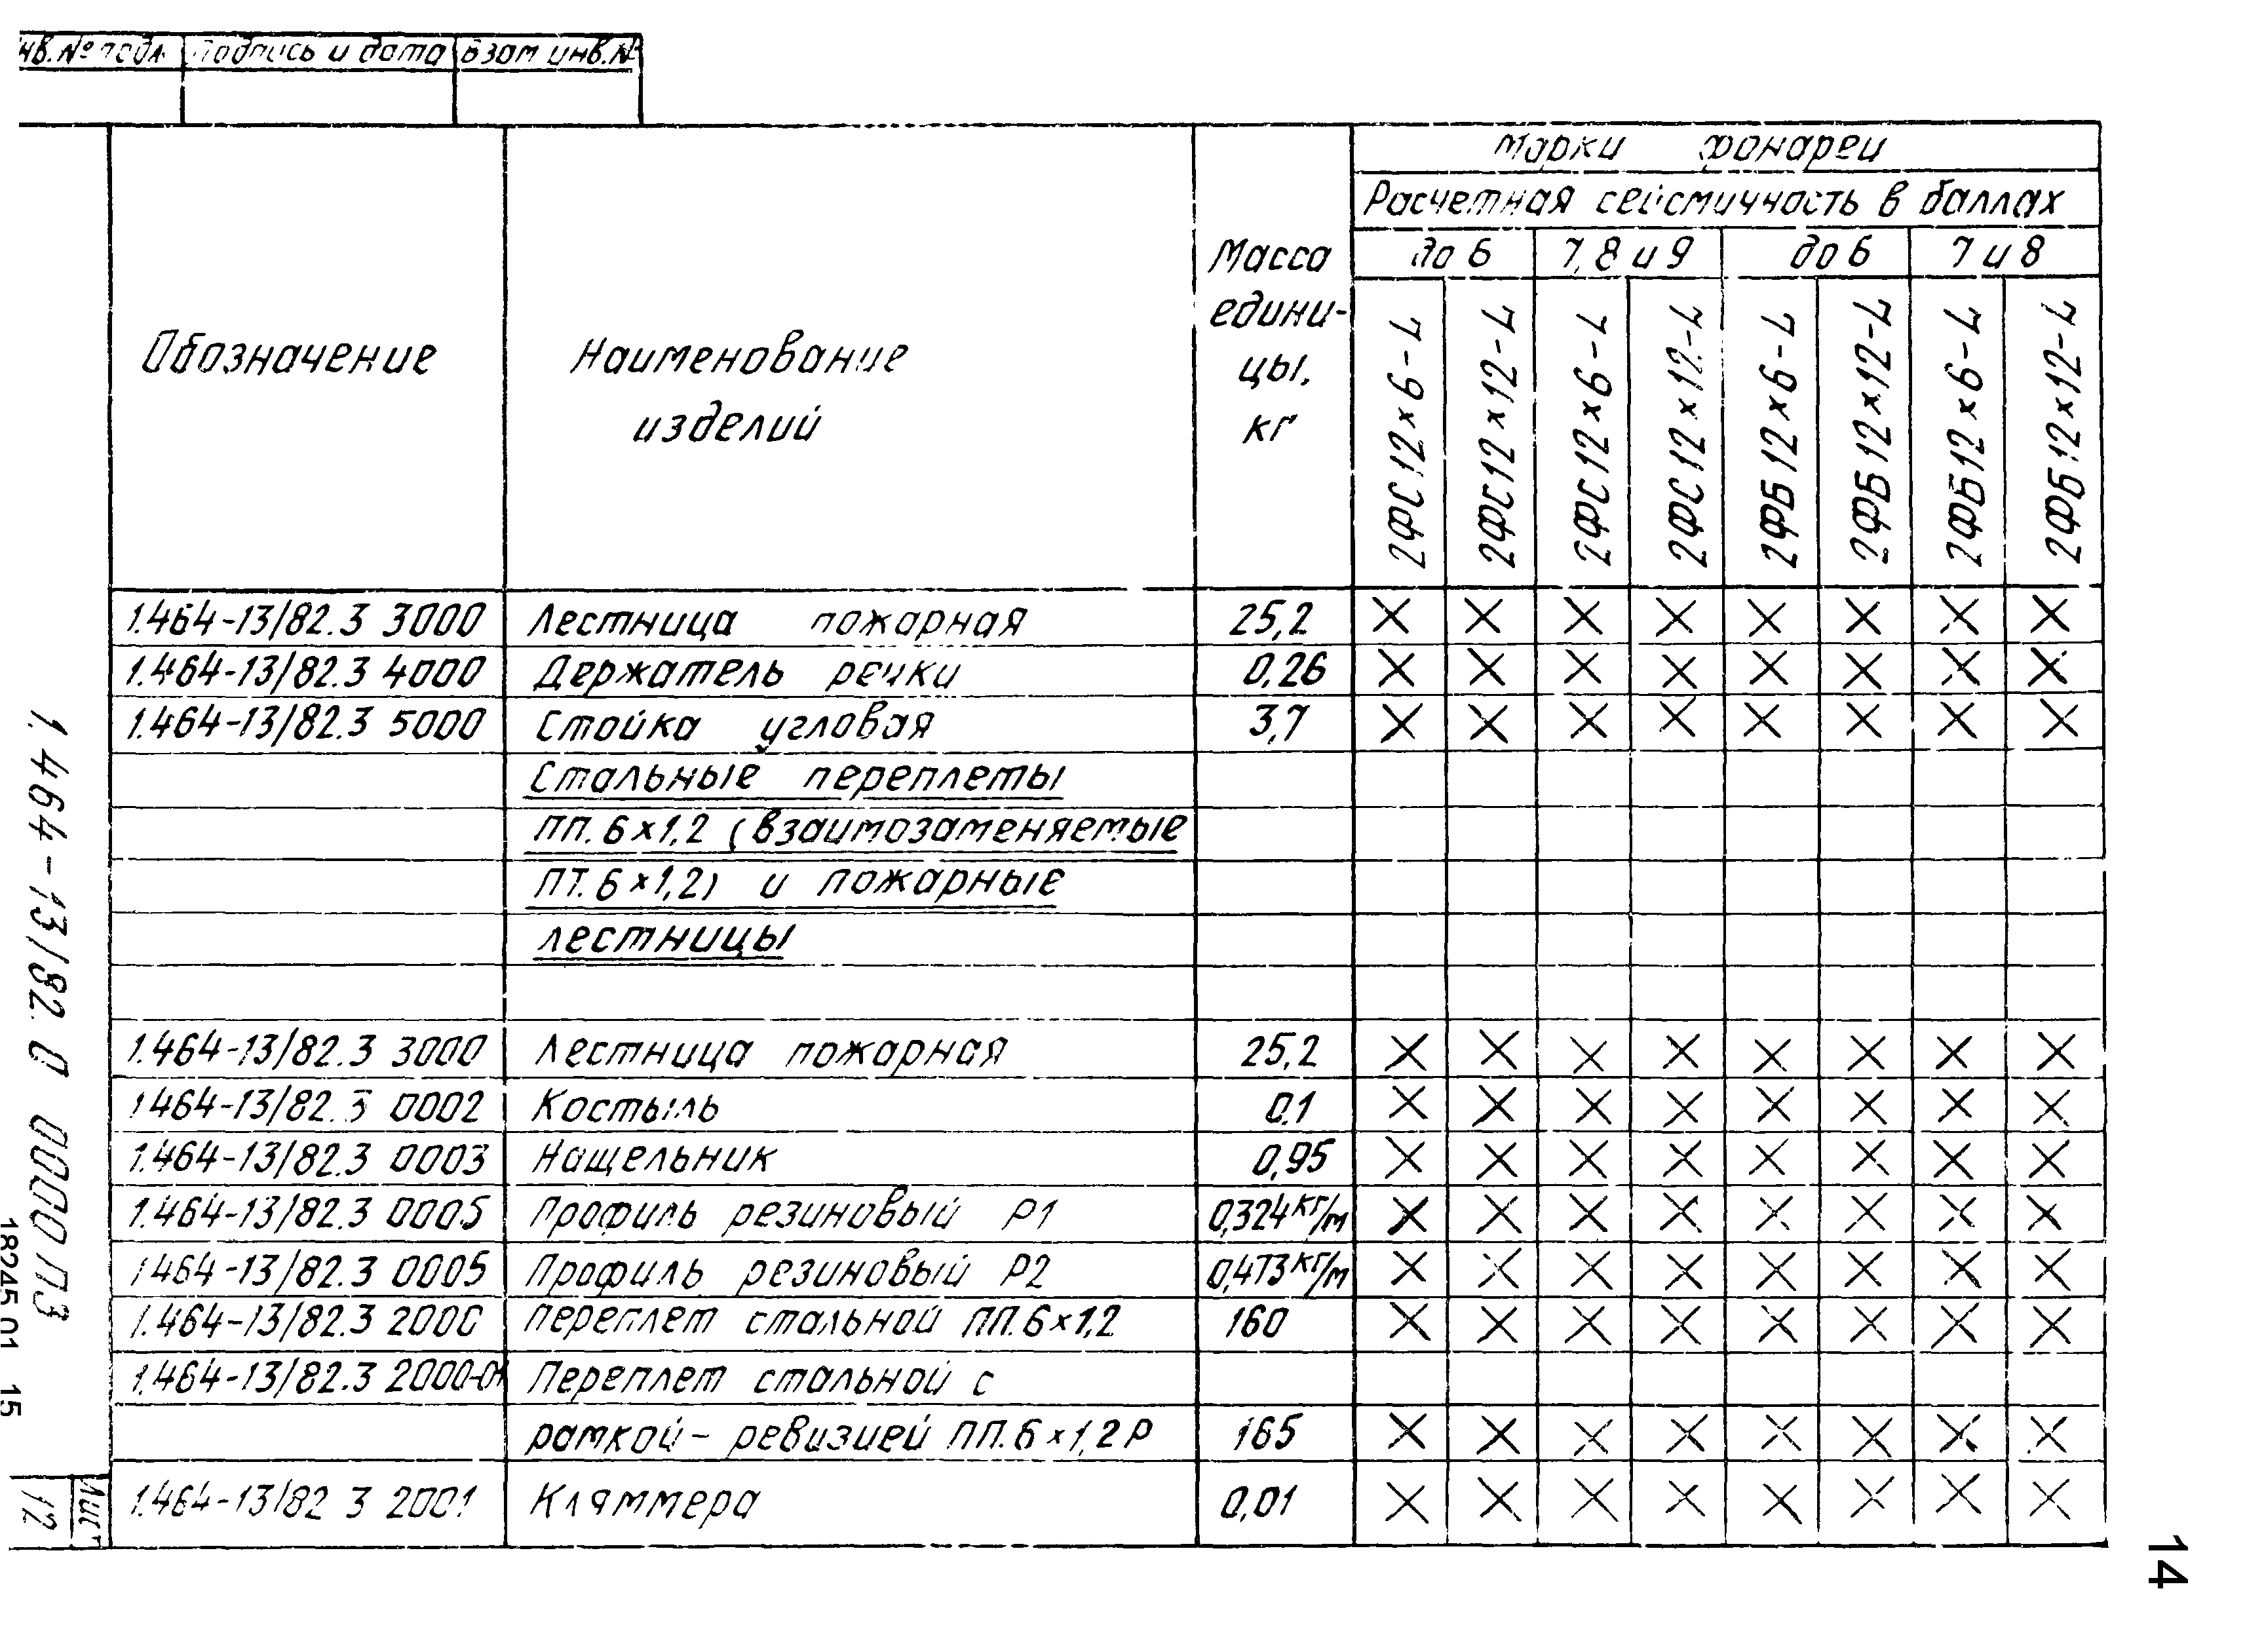 инв. № подл. Подпись и дата Взам инв. №
Марки фонарей
Расчетная сейсмичность в баллах
до 6 7,8 и 9 до 6 7 и 8
Обозначение
Наименование
изделий
Масса
едини-
цы,
кг
2ФС12×6-L
2ФС12×12-L
2ФС12×6-L
2ФС12×12-L
2ФБ12×6-L
2ФБ12×12-L
2ФБ12×6-L
2ФБ12×12-L
1.464-13/82.3 3000 Лестница пожарная 25,2 × × × × × × × ×
1.464-13/82.3 4000 Держатель речки 0,26 × × × × × × × ×
1.464-13/82.3 5000 Стойка угловая 3,7 × × × × × × × ×
Стальные переплеты
ПП.6×1,2 (взаимозаменяемые
ПТ.6×1,2) и пожарные
лестницы
1.464-13/82.3 3000 Лестница пожарная 25,2 × × × × × × × ×
1.464-13/82.3 0002 Костыль 0,1 × × × × × × × ×
1.464-13/82.3 0003 Нащельник 0,95 × × × × × × × ×
1.464-13/82.3 0005 Профиль резиновый Р1 0,324кг/м × × × × × × × ×
1.464-13/82.3 0005 Профиль резиновый Р2 0,473кг/м × × × × × × × ×
1.464-13/82.3 2000 Переплет стальной ПП.6×1,2 160 × × × × × × × ×
1.464-13/82.3 2000-01 Переплет стальной с
рамкой-ревизией ПП.6×1,2Р 165 × × × × × × × ×
1.464-13/82 3 2001 Кляммера 0,01 × × × × × × × ×
1.464-13/82.0 0000ПЗ
18245 01 15
Лист
12
14